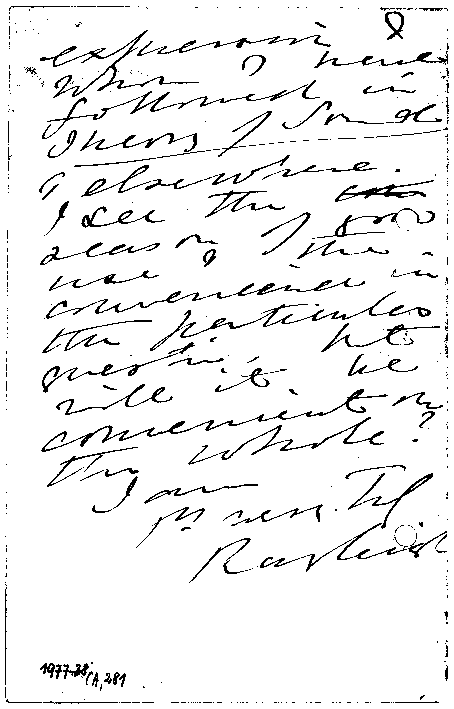 expression
whom I have
followed in
Theory of Sound
& elsewhere.
I see the good
reason of the
use &
convenience in
the particular
question, but
will it be
convenient on
the whole?
I am
Yrs very Tly
Rayleigh
1977-28/CA,281